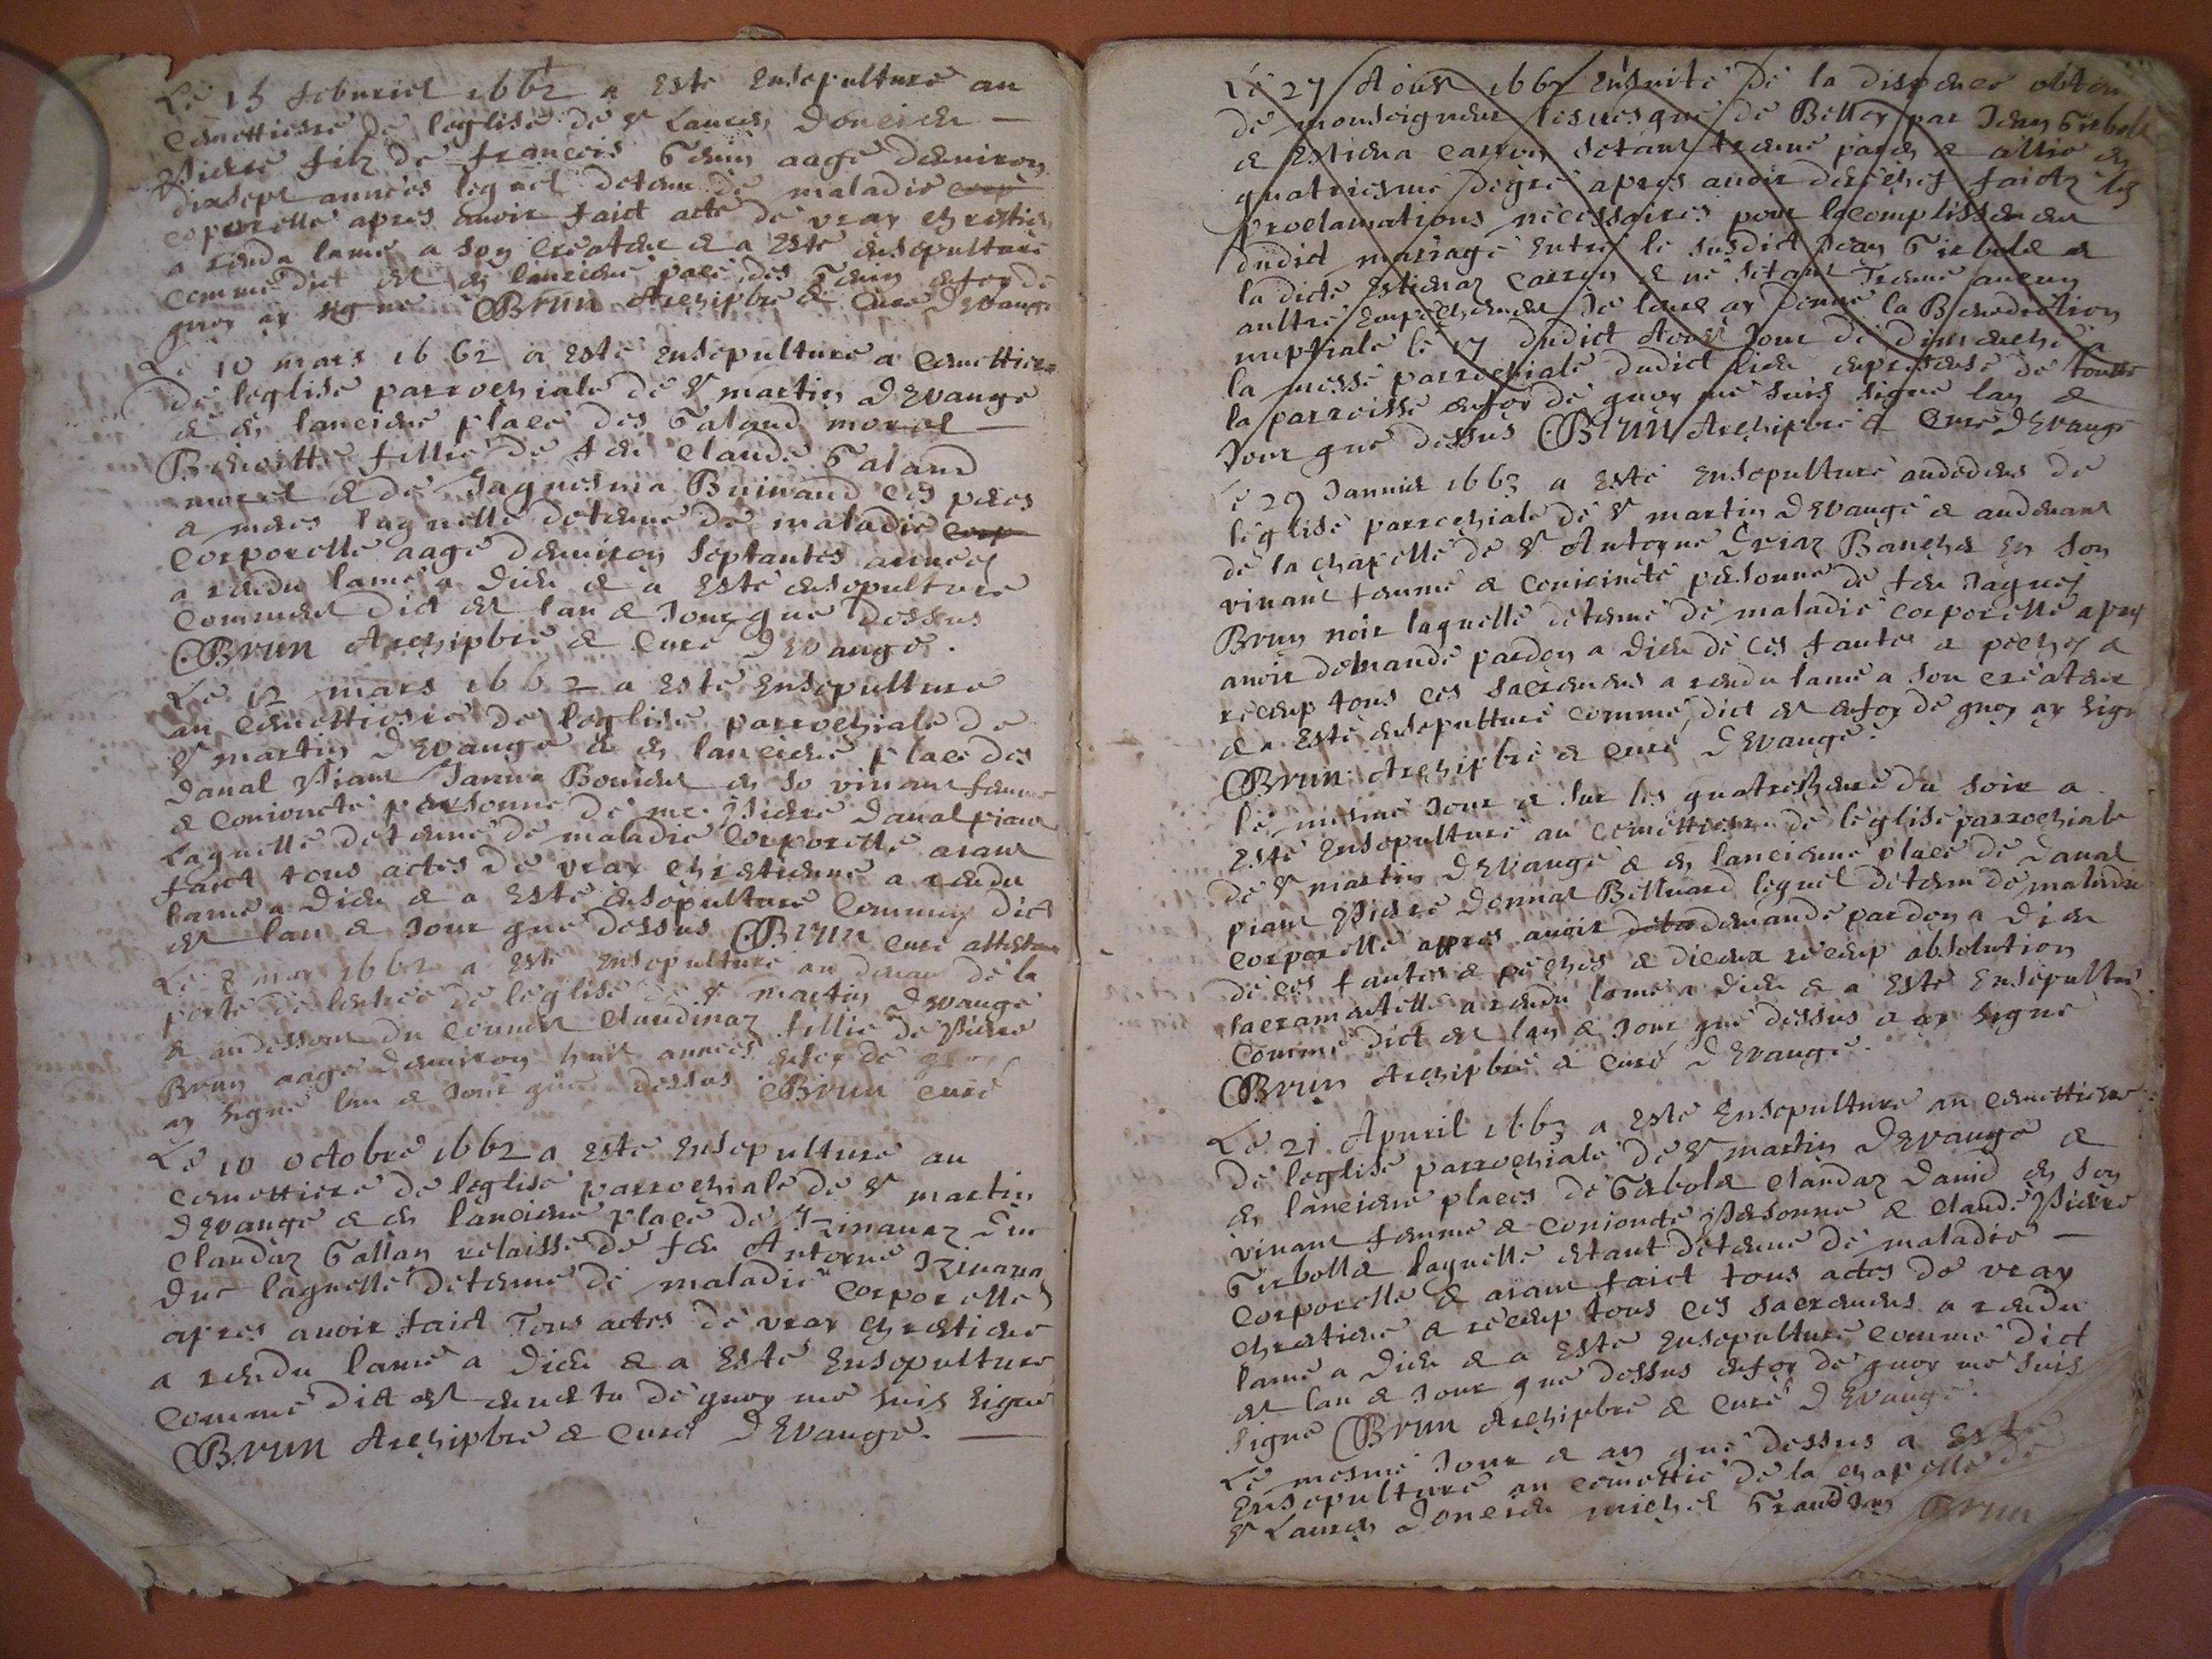 Le 15 feburier 1662 a este ensepulture au
cemettiere de leglise de St Laurens Doncieu
Pierre filz de francois Genin aage denviron
dixsept annees lequel detenu de maladie corp
coporelle apres avoir faict acte de vray chrestien
a rendu lame a son createur & a este ensepulture
comme dict est en lanciene place des Genin enfoy de
quoy ay signe Brun Archipbre & Cure D Evange
Le 10 mars 1662 a este ensepulture a cemettiere
de leglise parrochiale de St martin D Evange
& en lanciene place des Galand morel
Benoitte fillie de feu Claude Galand
morel & de Jaquesma Buinand ces peres
& meres laquelle detenue de maladie corp
corporelle aage denviron septantes annees
a rendu lame a Dieu & a este ensepulture
comme dict est lan & Jour que dessus
Brun Archipbre & Cure D Evange.
Le 12 mars 1662 a este ensepulture
au cemettiere de leglise parrochiale de
St martin D Evange & en lanciene place des
Danal Piant Janna en so vivant femme
& conioncte personne de me Pierre Danal piant
Laquelle detenue de maladie corporelle aiant
faict tous actes de vray chrestienne a rendu
lame a Dieu & a este ensepulture comme dict
est lan & Jour que dessus Brun cure
Le 8 may 1662 a este ensepulture au devant de la
porte de lentree de leglise de St martin D Evange
& audessous du Claudinaz fillie de Pierre
Brun aage denviron huit annees enfoy de quoy
ay signe lan & Jour que dessus Brun cure
Le 10 octobre 1662 a este ensepulture au
cemettiere de leglise parrochiale de St martin
D Evange & en lanciene place de Izinavaz Duc
Claudaz Gallan relaisse de feu Antoyne Izinava
Duc laquelle detenue de maladie corporelle
apres avoir faict Tous actes de vray chrestiene
a rendu lame a Dieu & a este ensepulture
comme dict est de quoy me suis signe
Brun Archipbre & Cure D Evange.
Le 27 Aoust 1662 ensuite de la dispence obten
de monseigneur lesvesque de Belley par Jean Girbold
& Estiena Carron setant trouve paren & allie en
quatriesme degre apres avoir derechef faictz les
proclamations necessaires pour lacomplissement
dudict mariage entre le susdict Jean Girbold &
la dicte Estienaz Carron & ne setant Trouve aucun
aultre empechement Je leur ay donne la Benediction
nuptiale le 27 dudict Aoust Jour de dimenche a
la messe parrochiale dudict lieu enpresense de toutte
la parroisse enfoy de quoy me suis signe lan &
Jour que dessus Brun Archipbre & Cure D Evange
Le 29 Jannier 1663 a este ensepulture audedens de
leglise parrochiale de St martin D Evange & audevant
de la chapelle de St Antoyne en son
vivant femme & conioincte personne de feu Jaques
Brun noir laquelle detenue de maladie corporelle apres
avoir demande pardon a Dieu de ces fautes & peches &
receup tous ces sacremens a rendu lame a son createur
& a este ensepulture comme dict est enfoy de quoy ay sign
Brun Archipbre & cure D Evange.
le mesme Jour & sur les quatresheure du soir a
este ensepulture au cemettiere de leglise parrochiale
de St martin D Evange & en lancienne place de Danal
piant Pierre Donnat Belluard lequel detenu de maladie
corporelle appres avoir deten demande pardon a Dieu
de ces fautes & peches & receup absolution
sacramentelle a rendu lame a Dieu & a este ensepulture
comme dict est lan & Jour que dessus & ay signe
Brun Archipbre & Cure D Evange.
Le 21 Apvril 1663 a este ensepulture au cemettiere
de leglise parrochiale de St martin D Evange &
en lanciene places de Girbold Claudaz David en son
vivant femme & conioncte Personne & Claude Pierre
Girbolld laquelle etant detenue de maladie
corporelle & aiant faict tous actes de vray
chrestiene & receup tous ces sacremens a rendu
lame a Dieu & a este ensepulture comme dict
est lan & Jour que dessus enfoy de quoy me suis
signe Brun Archipbre & Cure D Evange.
Le mesme Jour & an que dessus a este
ensepulture au cemettie de la chapelle de
St Laurens Doncieu michel Brun